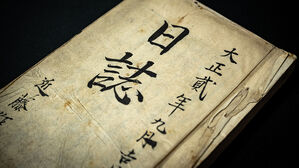 大正貳年九月
日誌
近藤